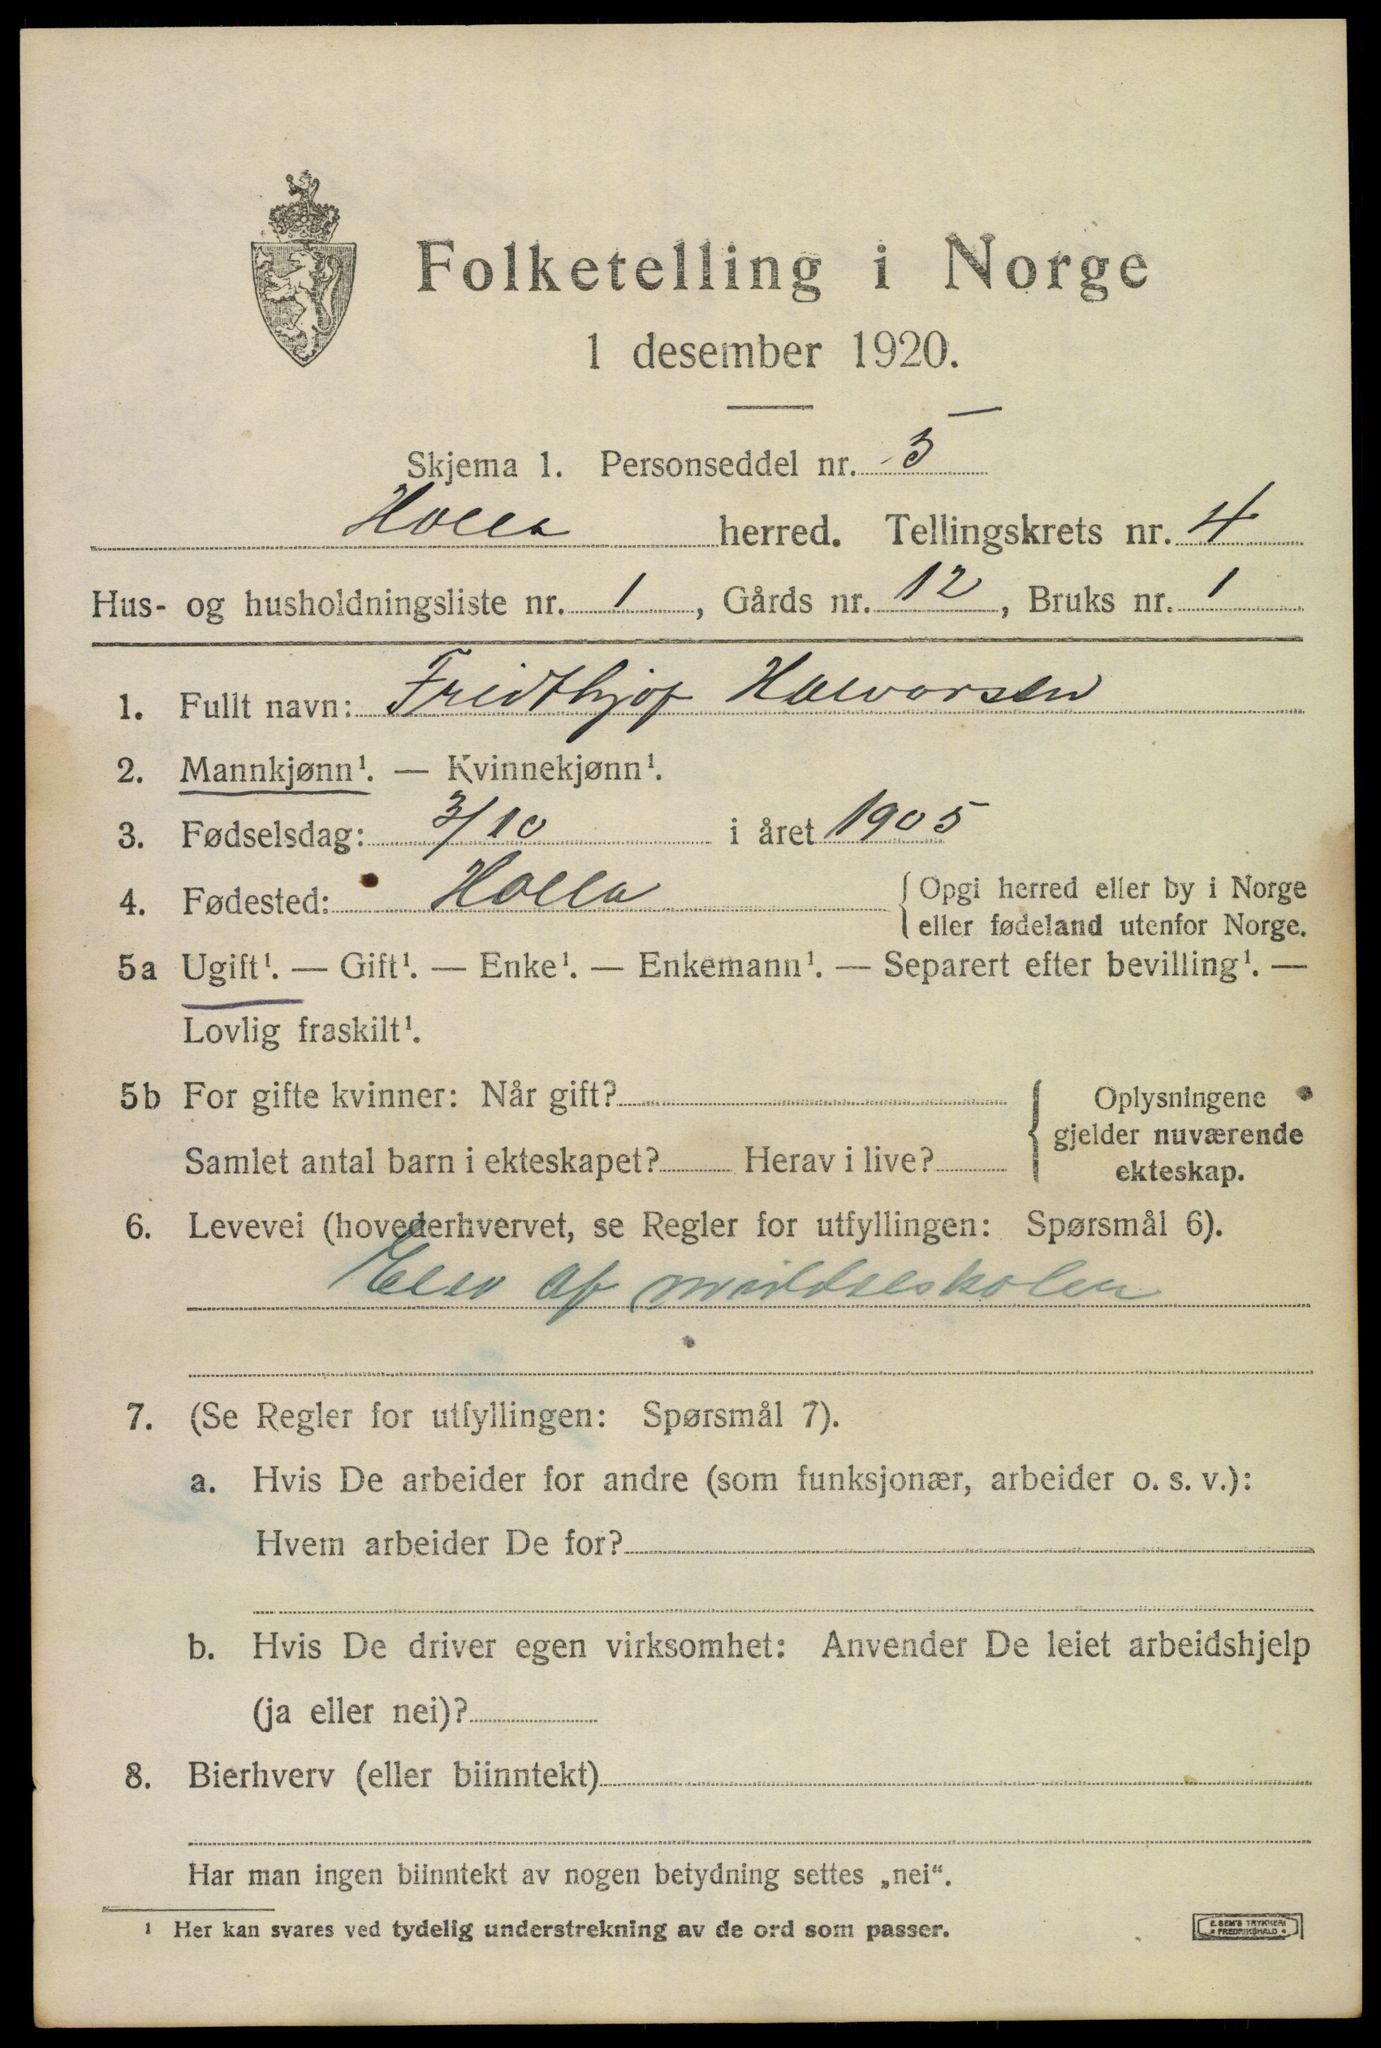 Folketelling i Norge
1 desember 1920.
Skjema 1. Personseddel nr. 5
Holla herred. Tellingskrets nr. 4
Hus- og husholdningsliste nr. 1, Gårds nr. 12, Bruks nr. 1
1. Fullt navn: Fridthjof Halvorsen
2. Mannkjønn¹. — Kvinnekjønn¹.
3. Fødselsdag: 3/10 i året 1905
4. Fødested: Holla { Opgi herred eller by i Norge
eller fødeland utenfor Norge.
5a Ugift¹. — Gift¹. — Enke¹. — Enkemann¹. — Separert efter bevilling¹. —
Lovlig fraskilt¹.
5b For gifte kvinner: Når gift? { Oplysningene
gjelder nuværende
Samlet antal barn i ekteskapet? Herav i live?
ekteskap.
6. Levevei (hovederhvervet, se Regler for utfyllingen: Spørsmål 6).
Elev af middelskolen
7. (Se Regler for utfyllingen: Spørsmål 7).
a. Hvis De arbeider for andre (som funksjonær, arbeider o. s. v.):
Hvem arbeider De for?
b. Hvis De driver egen virksomhet: Anvender De leiet arbeidshjelp
(ja eller nei)?
8. Bierhverv (eller biinntekt)
Har man ingen biinntekt av nogen betydning settes „nei“.
¹ Her kan svares ved tydelig understrekning av de ord som passer.
E. SEM'S TRYKKERI
FREDRIKSHALD